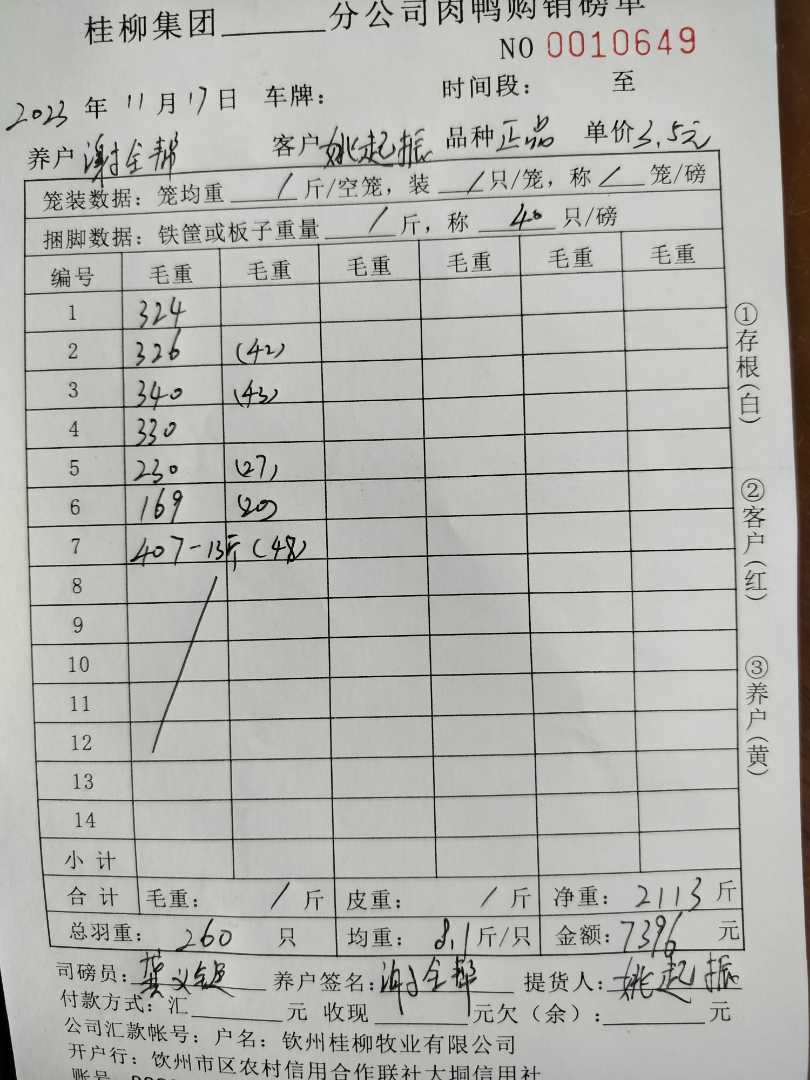 桂柳集团______分公司肉鸭购销磅单
NO 0010649
2023 年 11 月 17 日 车牌： 时间段： 至
养户 谢全帮 客户 姚起振 品种 正品 单价 3.5元
笼装数据：笼均重 / 斤/空笼，装 / 只/笼，称 / 笼/磅
捆脚数据：铁筐或板子重量 / 斤，称 40 只/磅
编号 毛重 毛重 毛重 毛重 毛重 毛重
1 324
2 326 (42)
3 340 (43)
4 330
5 230 (27)
6 169 (20)
7 407-13斤 (48)
8
9
10
11
12
13
14
小 计
合 计 毛重： / 斤 皮重： / 斤 净重： 2113 斤
总羽重： 260 只 均重： 8.1 斤/只 金额： 7396 元
司磅员： 龚义 养户签名：谢全帮 提货人：姚起振
付款方式：汇______元 收现______元欠（余）：______元
公司汇款帐号：户名：钦州桂柳牧业有限公司
开户行：钦州市区农村信用合作联社大垌信用社
①存根（白） ②客户（红） ③养户（黄）